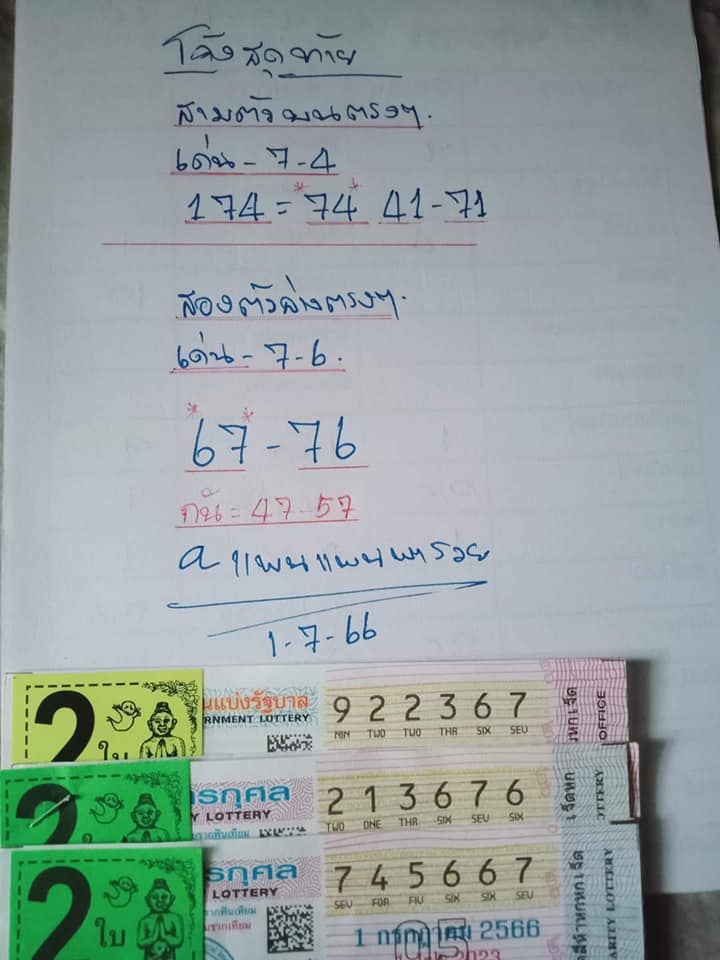 โค้งสุดท้าย
สามตัวบนตรงๆ.
เด่น - 7-4
174 = *74* 41-71
สองตัวล่างตรงๆ.
เด่น - 7-6.
*67* - 76
กัน = 47-57
a แพนแพนพารวย
1-7-66
2 ใบ
นแบ่งรัฐบาล
RNMENT LOTTERY
9 2 2 3 6 7
NIN TWO TWO THR SIX SEV
OFFICE
2
รกุศล
Y LOTTERY
2 1 3 6 7 6
TWO ONE THR SIX SEV SIX
OTTERY
2 ใบ
รกุศล
LOTTERY
7 4 5 6 6 7
SEV FOR FIV SIX SIX SEV
1 กรกฎาคม 2566
05
ARITY LOTTERY